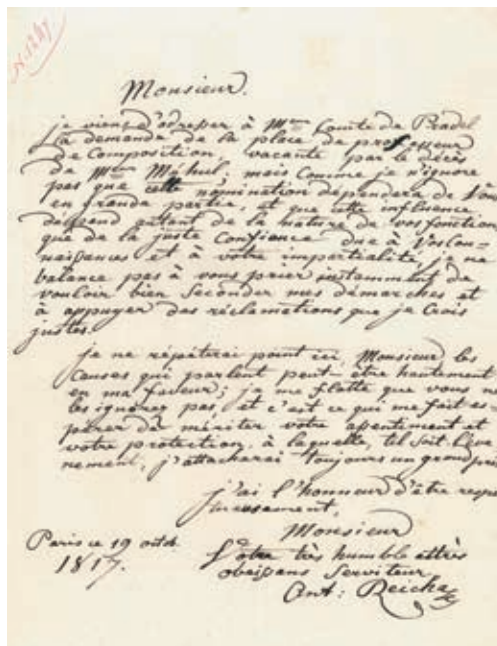 N. 1247
Monsieur.
je viens d'adresser à Mr. Comte de Pradel
la demande de la place de professeur
de Composition, vacante par le décès
de Mr. Méhul; mais comme je n'ignore
pas que cette nomination dépendera de Vous
en grande partie et que cette influence
dépend autant de la nature de vos fonctions
que de la juste Confiance due à Vos Con=
naissances et à votre impartialité, je ne
balance pas à vous prier instamment de
vouloir bien Seconder mes démarches et
à appuyer des réclamations que je Crois
justes.
je ne répéterai point ici, Monsieur les
Causes qui parlent peut-être hautement
en ma faveur; je me flatte que vous ne
les ignorez pas, et c'est ce qui me fait es-
pérer de mériter votre assentiment et
votre protection, à laquelle, tel soit l'évé
nement, j'attacherai toujours un grand prix
j'ai l'honneur d'être respec
tueusement,
Monsieur
Paris ce 19 octob.
1817.
Votre très humble et très
obeissans Serviteur
Ant: Reicha